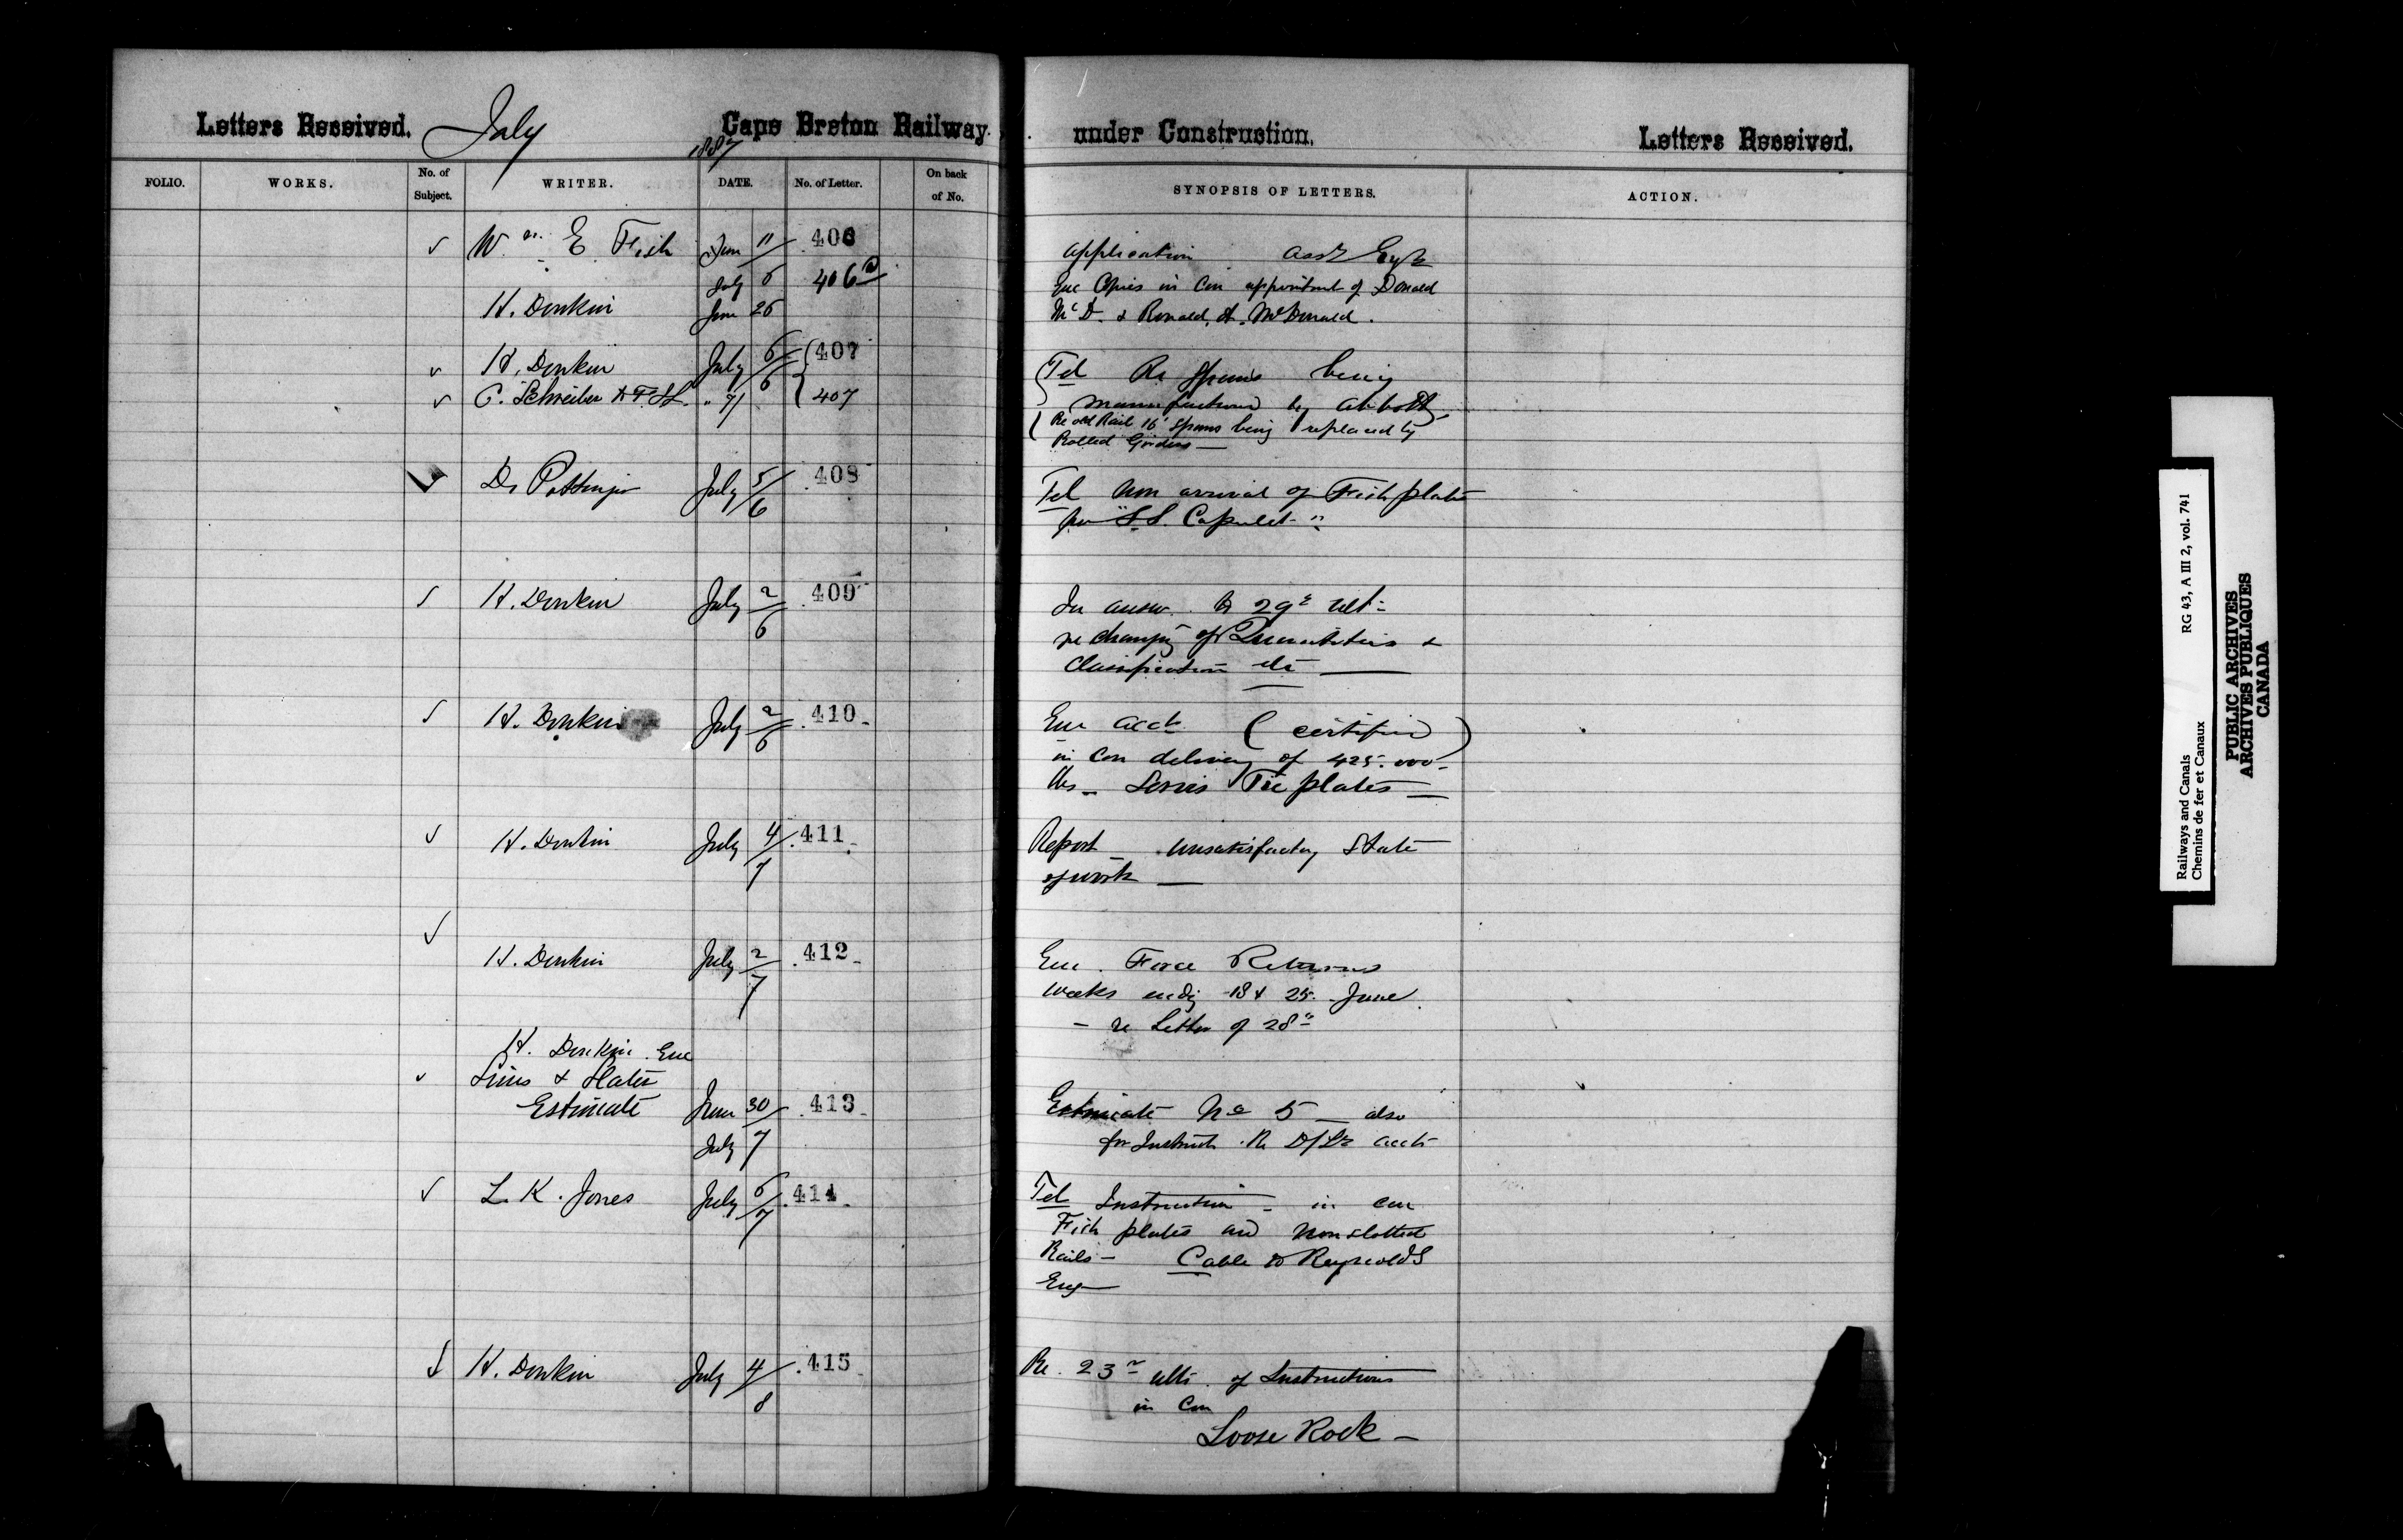 Letters Received. July 1887 Cape Breton Railway
FOLIO. WORKS. No. of Subject. WRITER. DATE. No. of Letter. On back of No.
✓ Wm. E. Fish June 11 406
July 6 406a
H. Donkin June 26
✓ H. Donkin July 6/6 407
✓ C. Schreiber " 7/ 407
D. Pottinger July 5/6 408
✓ H. Donkin July 2/6 409
✓ H. Donkin July 2/6 410
✓ H. Donkin July 4/7 411
✓
H. Donkin July 2/7 412
H. Donkin Enc
✓ Sims & Slater
Estimate June 30/ 413
July 7
✓ L. K. Jones July 6/7 414
✓ H. Donkin July 4/8 415
under Construction. Letters Received.
SYNOPSIS OF LETTERS. ACTION.
Application Asst Engr
Enc Copies in Con appointment of Donald
McD. & Ronald. A. McDonald.
Tel Re Spans being
manufactured by Abbott
Re old Rail 16' Spans being replaced by
Rolled Girders —
Tel Non arrival of Fish plates
per "S.S. Capulet"
In answ. to 29th ult
re changing of Quantities &
Classification etc —
Enc acct (certified)
in Con delivery of 425.000
lbs — Servis Tie plates —
Report unsatisfactory State
of work —
Enc. Force Returns
Weeks endg 18 & 25 June
— re Letter of 28th
Estimate No 5 — also
for Instruct. Re acct
Tel Instruction — in con
Fish plates and Non slotted
Rails — Cable to Reynolds
Eng —
Re. 23rd ulto. of Instructions
in Con
Loose Rock —
Railways and Canals RG 43, A III 2, vol. 741
Chemins de fer et Canaux
PUBLIC ARCHIVES
ARCHIVES PUBLIQUES
CANADA